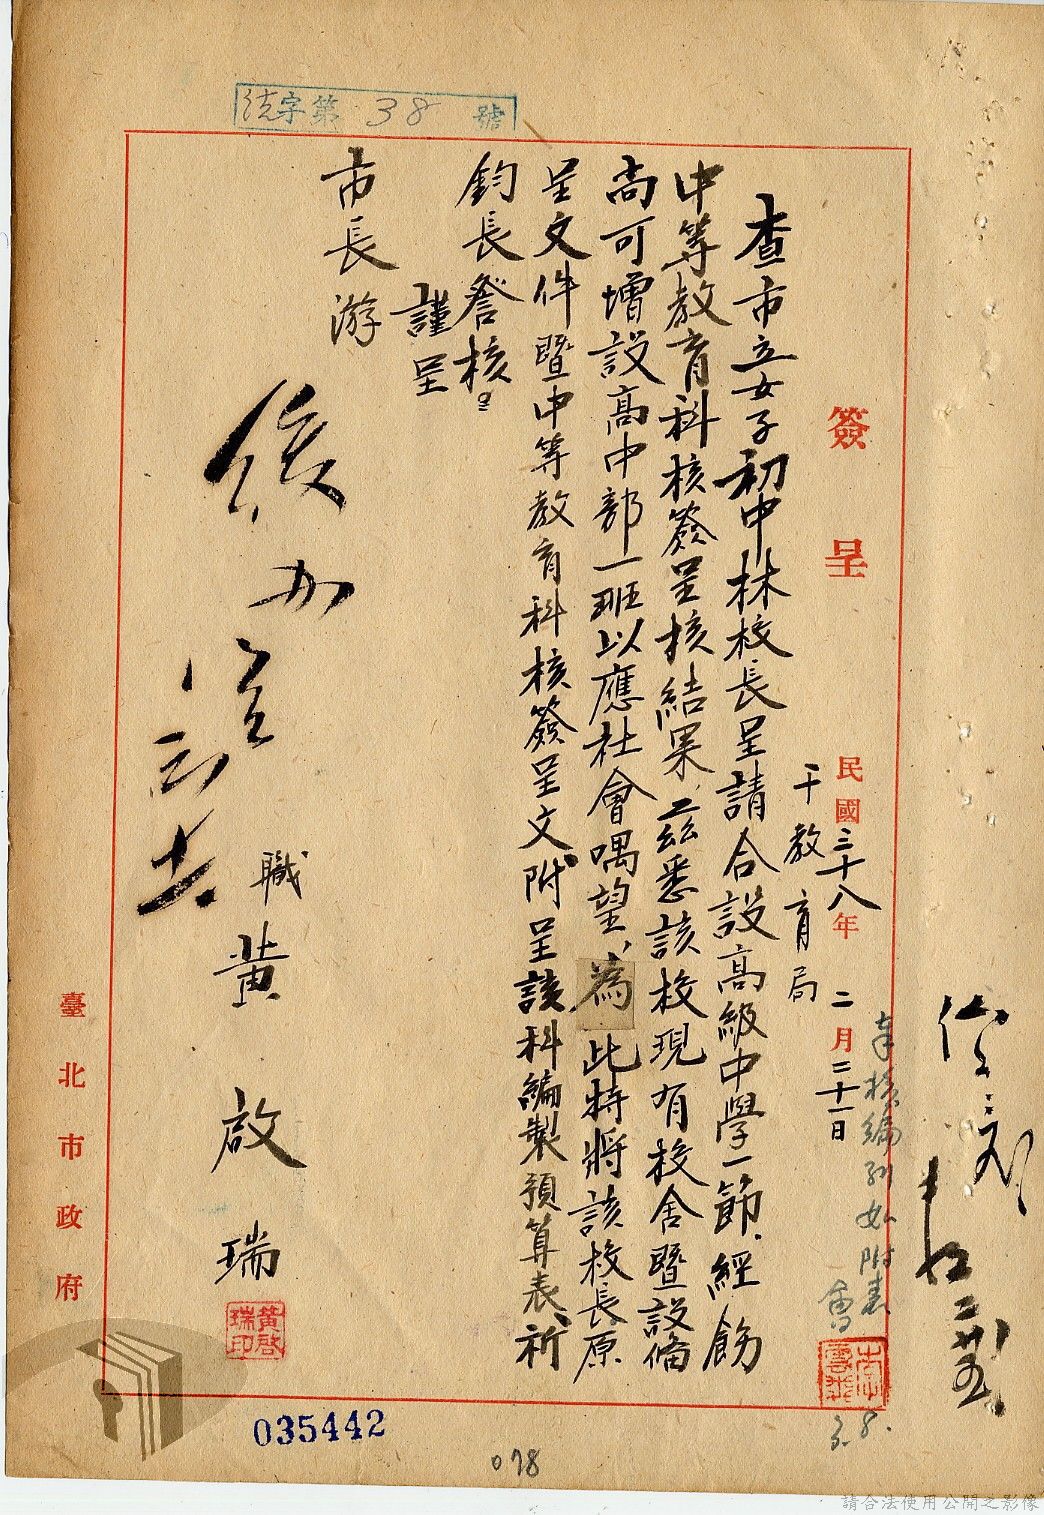 統字第38號
簽呈 民國三十八年二月二十一日
于教育局
查市立女子初中林校長呈請合設高級中學一節、經飭
中等教育科核簽呈核結果、茲悉該校現有校舍暨設備
尚可增設高中部一班以應社會喁望、為此特將該校長原
呈文件暨中等教育科核簽呈文附呈該科編製預算表、祈
鈞長詧核。
謹呈
市長 游
職 黃啟瑞
黃啓瑞印
奉核編列如附表
會
3.8.
臺北市政府
035442
078
請合法使用公開之影像